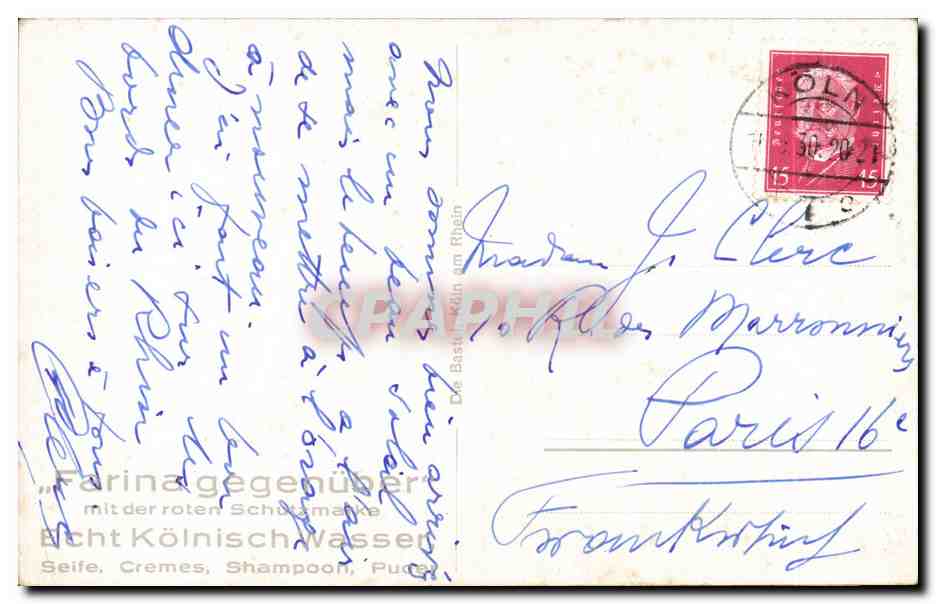 Nous sommes bien arrivés
avec un beau soleil
mais le temps a l'air
de se mettre à l'orage
à nouveau.
J'ai fait un bon
dîner ici sur les
bords du Rhin
Bons baisers à tous.
Die Bastei, Köln am Rhein
KÖLN
30.20-21
Deutsches Reich
15 15
Madame J. Clerc
10 R. des Marronniers
Paris 16e
Frankreich
CPAPHIL
„Farina gegenüber“
mit der roten Schutzmarke
Echt Kölnisch Wasser
Seife, Cremes, Shampoon, Puder